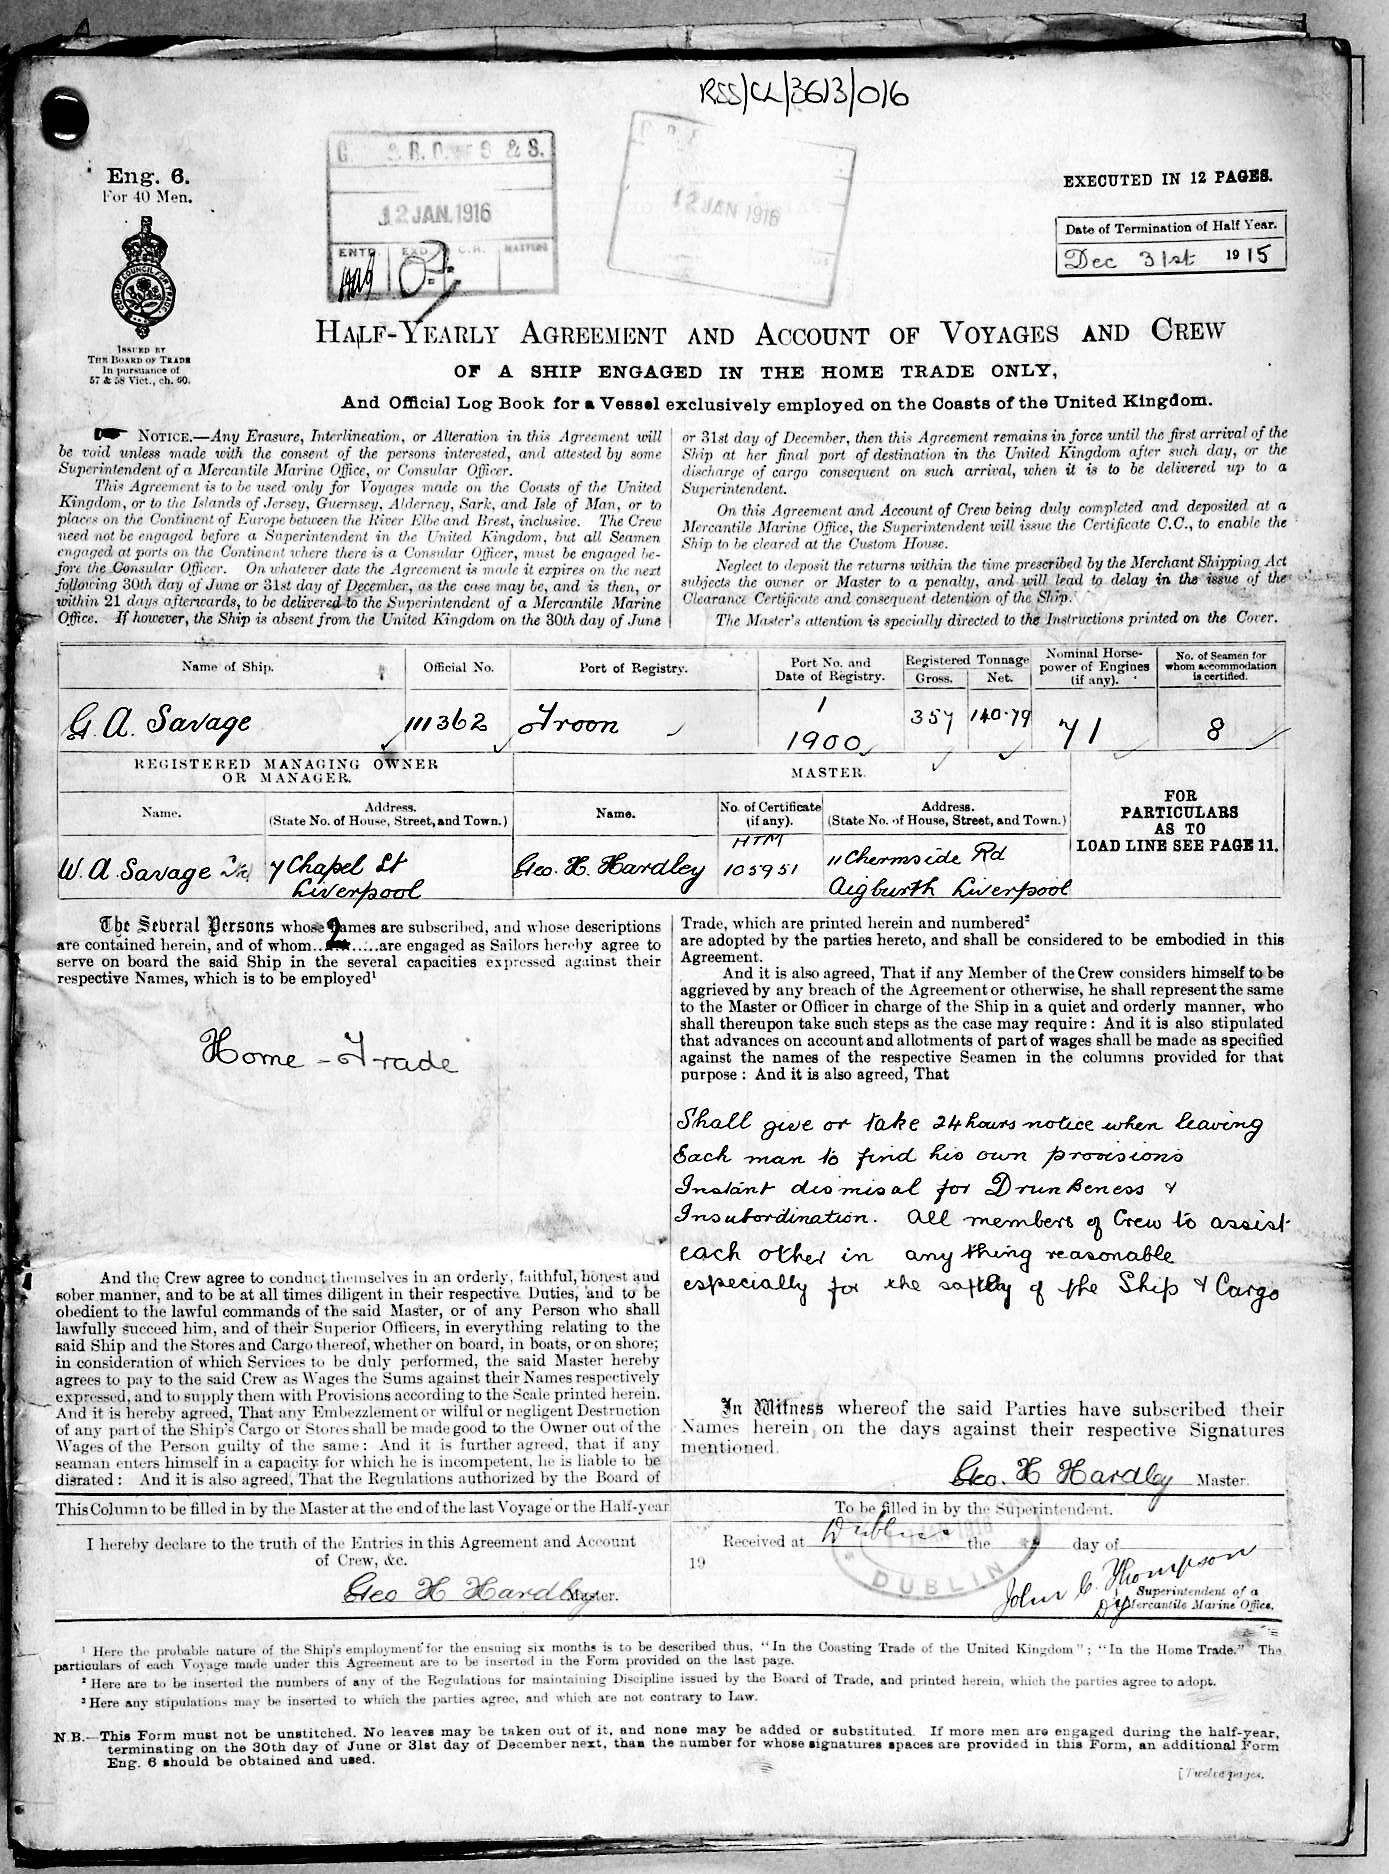 RSS/CL/3613/016
Eng. 6.
For 40 Men.
ISSUED BY
THE BOARD OF TRADE
In pursuance of
57 & 58 Vict., ch. 60.
& S.
12 JAN. 1916
ENTD.
12 JAN 1916
EXECUTED IN 12 PAGES.
Date of Termination of Half Year.
Dec 31st 1915
HALF-YEARLY AGREEMENT AND ACCOUNT OF VOYAGES AND CREW
OF A SHIP ENGAGED IN THE HOME TRADE ONLY,
And Official Log Book for a Vessel exclusively employed on the Coasts of the United Kingdom.
NOTICE.—Any Erasure, Interlineation, or Alteration in this Agreement will
be void unless made with the consent of the persons interested, and attested by some
Superintendent of a Mercantile Marine Office, or Consular Officer.
This Agreement is to be used only for Voyages made on the Coasts of the United
Kingdom, or to the Islands of Jersey, Guernsey, Alderney, Sark, and Isle of Man, or to
places on the Continent of Europe between the River Elbe and Brest, inclusive. The Crew
need not be engaged before a Superintendent in the United Kingdom, but all Seamen
engaged at ports on the Continent where there is a Consular Officer, must be engaged be-
fore the Consular Officer. On whatever date the Agreement is made it expires on the next
following 30th day of June or 31st day of December, as the case may be, and is then, or
within 21 days afterwards, to be delivered to the Superintendent of a Mercantile Marine
Office. If however, the Ship is absent from the United Kingdom on the 30th day of June
or 31st day of December, then this Agreement remains in force until the first arrival of the
Ship at her final port of destination in the United Kingdom after such day, or the
discharge of cargo consequent on such arrival, when it is to be delivered up to a
Superintendent.
On this Agreement and Account of Crew being duly completed and deposited at a
Mercantile Marine Office, the Superintendent will issue the Certificate C.C., to enable the
Ship to be cleared at the Custom House.
Neglect to deposit the returns within the time prescribed by the Merchant Shipping Act
subjects the owner or Master to a penalty, and will lead to delay in the issue of the
Clearance Certificate and consequent detention of the Ship.
The Master's attention is specially directed to the Instructions printed on the Cover.
Name of Ship. Official No. Port of Registry. Port No. and Date of Registry. Registered Tonnage Gross. Net. Nominal Horse-power of Engines (if any). No. of Seamen for whom accommodation is certified.
G. A. Savage 111362 Troon 1 1900 357 140.79 71 8
REGISTERED MANAGING OWNER
OR MANAGER.
MASTER.
Name. Address. (State No. of House, Street, and Town.) Name. No. of Certificate (if any). Address. (State No. of House, Street, and Town.)
FOR
PARTICULARS
AS TO
LOAD LINE SEE PAGE 11.
W. A. Savage Ltd 7 Chapel St Liverpool Geo. H. Hardley HTM 105951 11 Chermside Rd Aigburth Liverpool
The Several Persons whose names are subscribed, and whose descriptions
are contained herein, and of whom 2 are engaged as Sailors hereby agree to
serve on board the said Ship in the several capacities expressed against their
respective Names, which is to be employed¹
Home - Trade
And the Crew agree to conduct themselves in an orderly, faithful, honest and
sober manner, and to be at all times diligent in their respective Duties, and to be
obedient to the lawful commands of the said Master, or of any Person who shall
lawfully succeed him, and of their Superior Officers, in everything relating to the
said Ship and the Stores and Cargo thereof, whether on board, in boats, or on shore;
in consideration of which Services to be duly performed, the said Master hereby
agrees to pay to the said Crew as Wages the Sums against their Names respectively
expressed, and to supply them with Provisions according to the Scale printed herein.
And it is hereby agreed, That any Embezzlement or wilful or negligent Destruction
of any part of the Ship's Cargo or Stores shall be made good to the Owner out of the
Wages of the Person guilty of the same: And it is further agreed, that if any
seaman enters himself in a capacity for which he is incompetent, he is liable to be
disrated: And it is also agreed, That the Regulations authorized by the Board of
Trade, which are printed herein and numbered²
are adopted by the parties hereto, and shall be considered to be embodied in this
Agreement.
And it is also agreed, That if any Member of the Crew considers himself to be
aggrieved by any breach of the Agreement or otherwise, he shall represent the same
to the Master or Officer in charge of the Ship in a quiet and orderly manner, who
shall thereupon take such steps as the case may require: And it is also stipulated
that advances on account and allotments of part of wages shall be made as specified
against the names of the respective Seamen in the columns provided for that
purpose: And it is also agreed, That
Shall give or take 24 hours notice when leaving
Each man to find his own provisions
Instant dismisal for Drunkeness &
Insubordination. All members of Crew to assist
each other in any thing reasonable
especially for the saftey of the Ship & Cargo
In Witness whereof the said Parties have subscribed their
Names herein on the days against their respective Signatures
mentioned.
Geo. H Hardley Master.
This Column to be filled in by the Master at the end of the last Voyage or the Half-year
I hereby declare to the truth of the Entries in this Agreement and Account
of Crew, &c.
Geo H Hardley Master.
To be filled in by the Superintendent.
Received at Dublin the day of
19
DUBLIN
John C. Thompson
Dy Superintendent of a
Mercantile Marine Office.
¹ Here the probable nature of the Ship's employment for the ensuing six months is to be described thus, "In the Coasting Trade of the United Kingdom"; "In the Home Trade." The
particulars of each Voyage made under this Agreement are to be inserted in the Form provided on the last page.
² Here are to be inserted the numbers of any of the Regulations for maintaining Discipline issued by the Board of Trade, and printed herein, which the parties agree to adopt.
³ Here any stipulations may be inserted to which the parties agree, and which are not contrary to Law.
N.B.—This Form must not be unstitched. No leaves may be taken out of it, and none may be added or substituted. If more men are engaged during the half-year,
terminating on the 30th day of June or 31st day of December next, than the number for whose signatures spaces are provided in this Form, an additional Form
Eng. 6 should be obtained and used.
[Twelve pages.